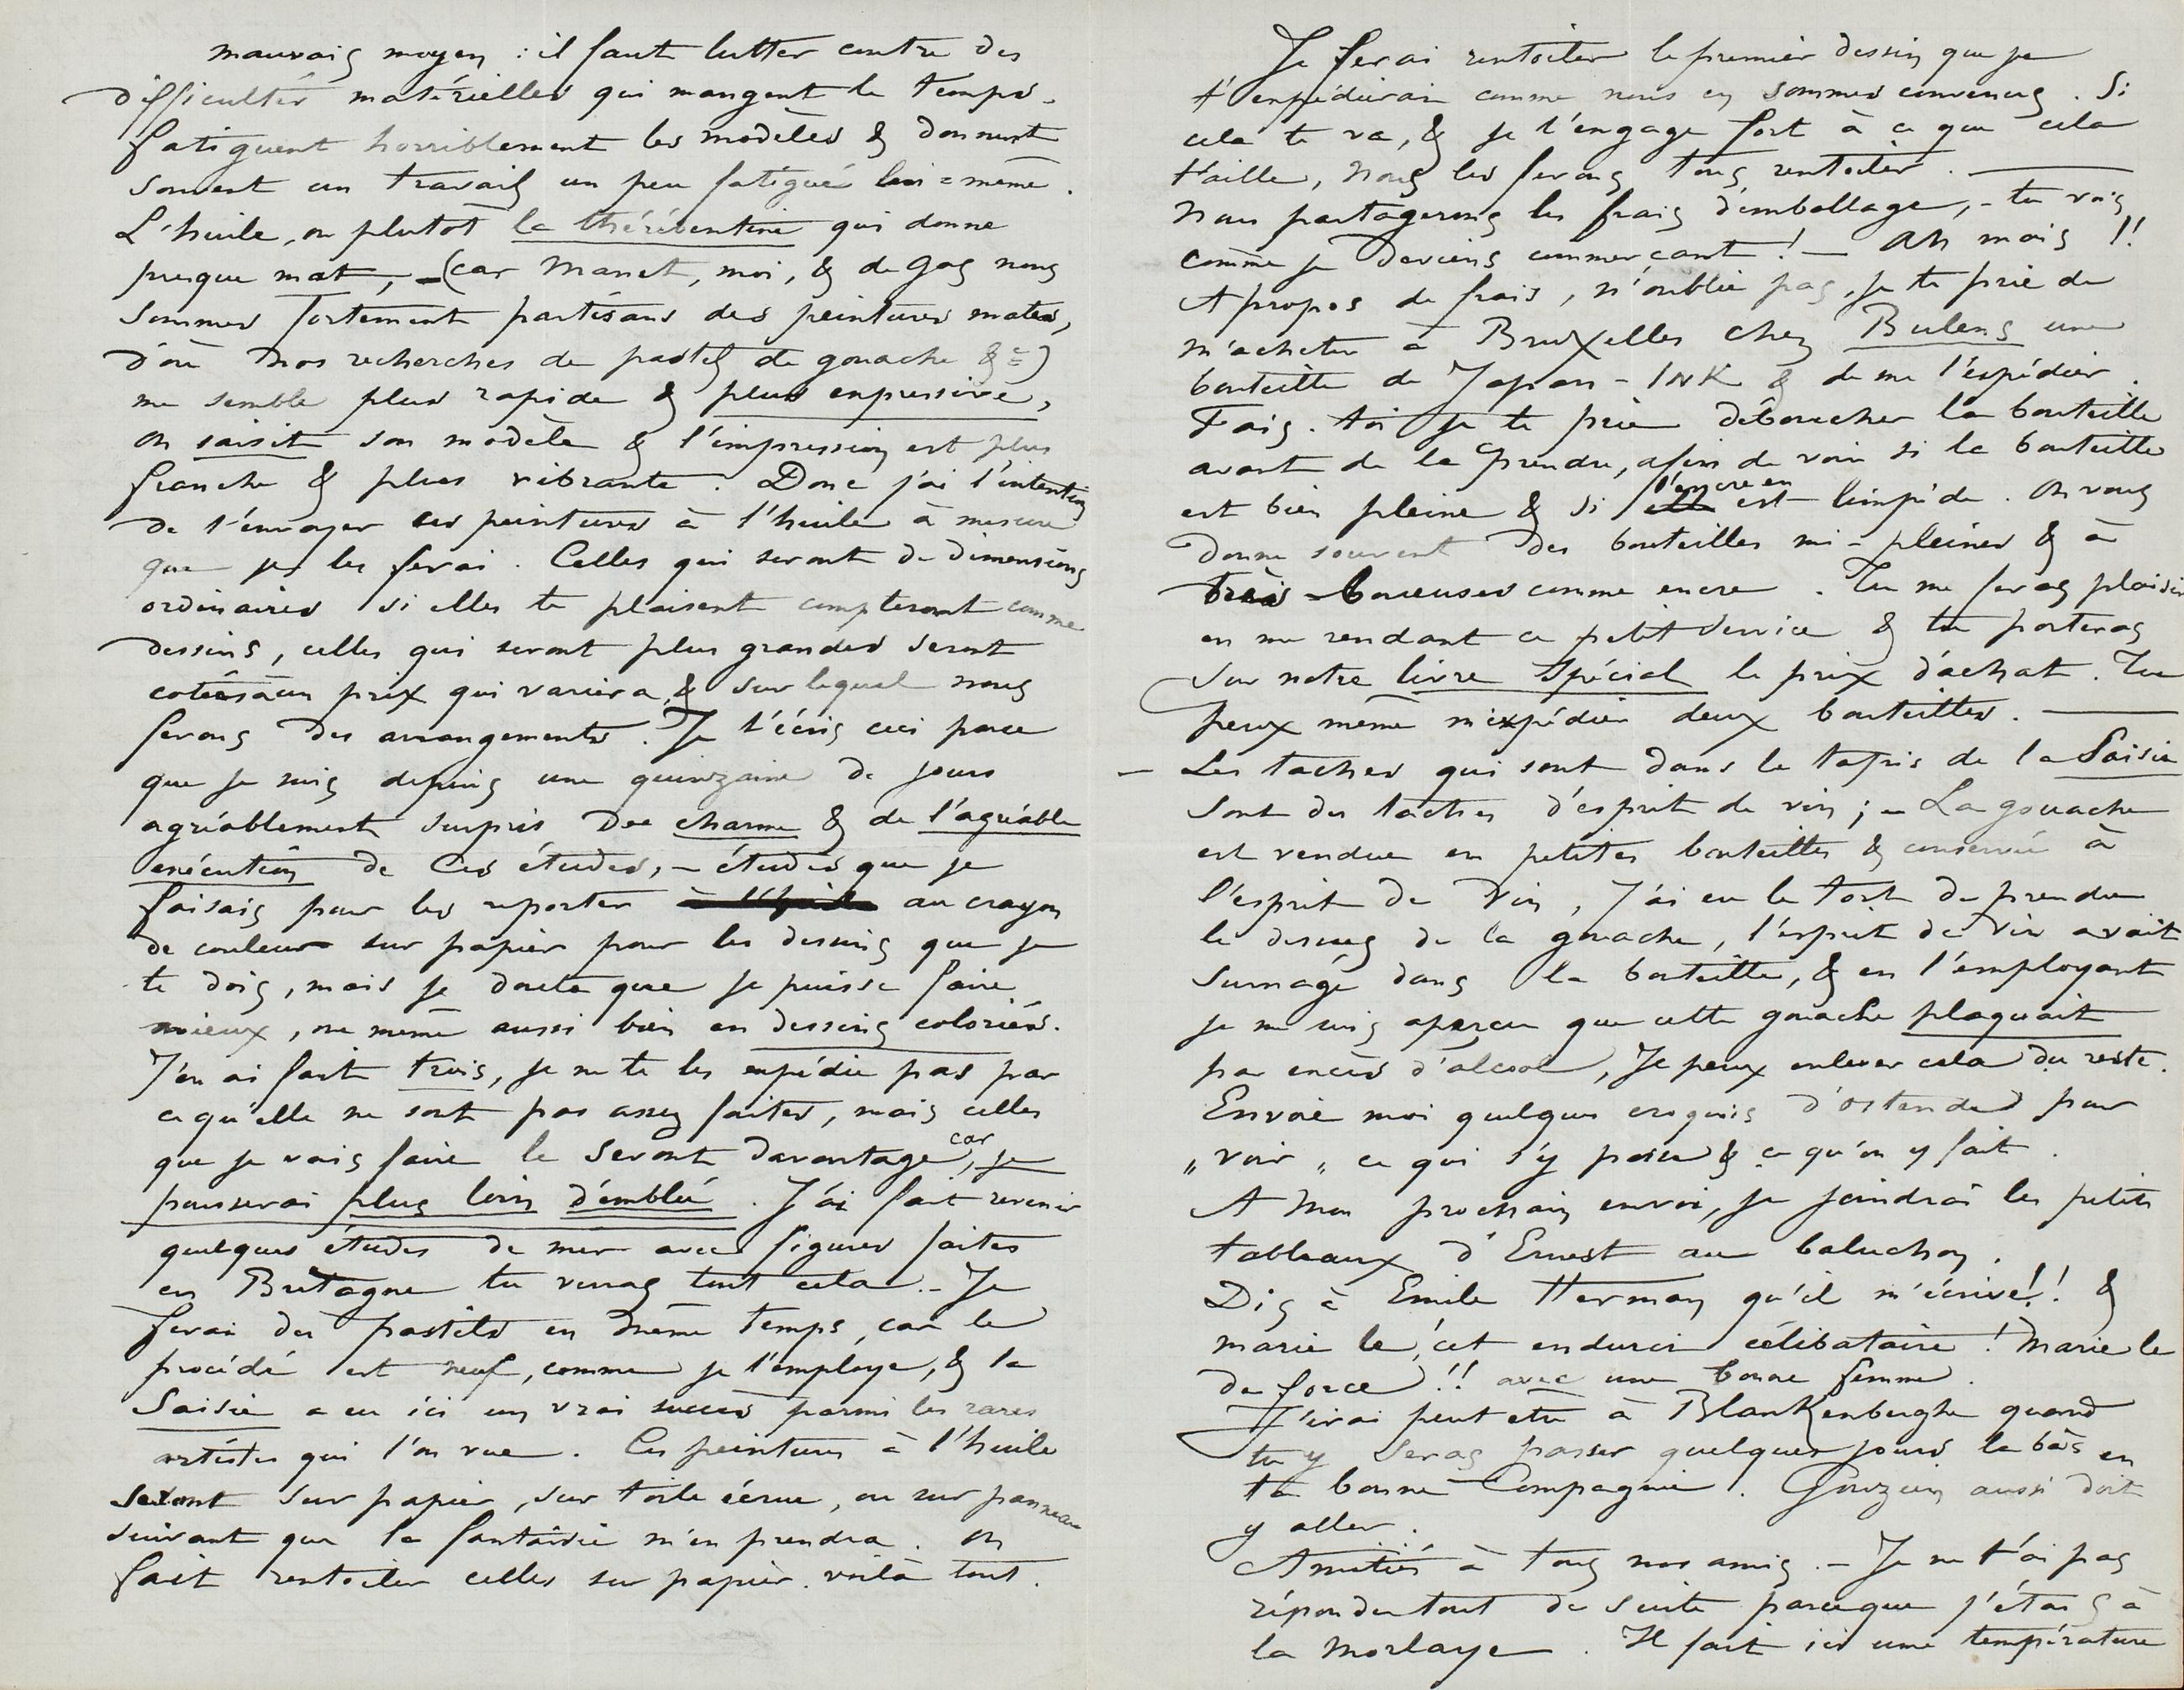 mauvais moyen : il faut lutter contre des
difficultés matérielles qui mangent le temps,
fatiguent horriblement les modèles & donnent
souvent un travail un peu fatigué lui=même.
L'huile, ou plutôt la thérébentine qui donne
presque mat, – (car Manet, moi, & de Gas nous
sommes fortement partisans des peintures mates,
d'où nos recherches de pastel de gouache &c)
me semble plus rapide & plus expressive,
on saisit son modèle & l'impression est plus
franche & plus vibrante. Donc j'ai l'intention
de t'envoyer ces peintures à l'huile à mesure
que je les ferai. Celles qui seront de dimensions
ordinaires si elles te plaisent compteront comme
dessins, celles qui seront plus grandes seront
cotées à un prix qui variera, & sur lequel nous
ferons des arrangements. Je t'écris ceci parce
que je suis depuis une quinzaine de jours
agréablement surpris du charme & de l'agréable
exécution de ces études, – études que je
faisais pour les reporter à l'huile au crayon
de couleur sur papier pour les dessins que je
te dois, mais je doute que je puisse faire
mieux, ou même aussi bien en dessins coloriés.
J'en ai fait trois, je ne te les expédie pas par
ce qu'elle ne sont pas assez faites, mais celles
que je vais faire le seront davantage, car je
pousserai plus loin d'emblée. J'ai fait revenir
quelques études de mer avec figures faites
en Bretagne tu verras tout cela. – Je
ferai des pastels en même temps, car le
procédé est neuf, comme je l'employe, & la
Saisie a eu ici un vrai succès parmi les rares
artistes qui l'on vue. Ces peintures à l'huile
seront sur papier, sur toile écrue, ou sur panneau
suivant que la fantaisie m'en prendra. On
fait rentoiler celles sur papier. voilà tout.
Je ferai rentoiler le premier dessin que je
t'expédierai comme nous en sommes convenus. Si
cela te va, & je t'engage fort à ce que cela
t'aille, nous les ferons tous rentoiler. —
Nous partagerons les frais d'emballage, – tu vois
comme je deviens commerçant! – Ah mais!!
A propos de frais, n'oublie pas, je te prie de
m'acheter à Bruxelles chez Bulens une
bouteille de Japan-INK & de me l'expédier.
Fais-toi je te prie déboucher la bouteille
avant de la prendre, afin de voir si la bouteille
est bien pleine & si elle l'encre en est limpide. On vous
donne souvent des bouteilles mi-pleines & à
très-boueuses comme encre. Tu me feras plaisir
en me rendant ce petit service & tu porteras
sur notre livre spécial le prix d'achat. Tu
peux même m'expédier deux bouteilles. —
– Les taches qui sont dans le tapis de la Saisie
sont des taches d'esprit de vin; – La gouache
est vendue en petites bouteilles & conservée à
l'esprit de vin, J'ai eu le tort de prendre
le dessus de la gouache, l'esprit de vin avait
surnagé dans la bouteille, & en l'employant
je me suis aperçu que cette gouache plaquait
par excès d'alcool, Je peux enlever cela du reste.
Envoie moi quelques croquis d'ostende pour
„ voir „ ce qui s'y passe & ce qu'on y fait.
A mon prochain envoi, je joindrai les petits
tableaux d'Ernest au baluchon.
Dis à Emile Herman qu'il m'écrive!! &
marie le, cet endurci célibataire! Marie le
de force!! avec une bonne femme.
J'irai peut etre à Blankenberghe quand
tu y seras passer quelques jours la bas en
ta bonne Compagnie. Gouzien aussi doit
y aller.
Amitiés à tous nos amis. – Je ne t'ai pas
répondu tout de suite parceque j'étais à
la Morlaye. Il fait ici une température